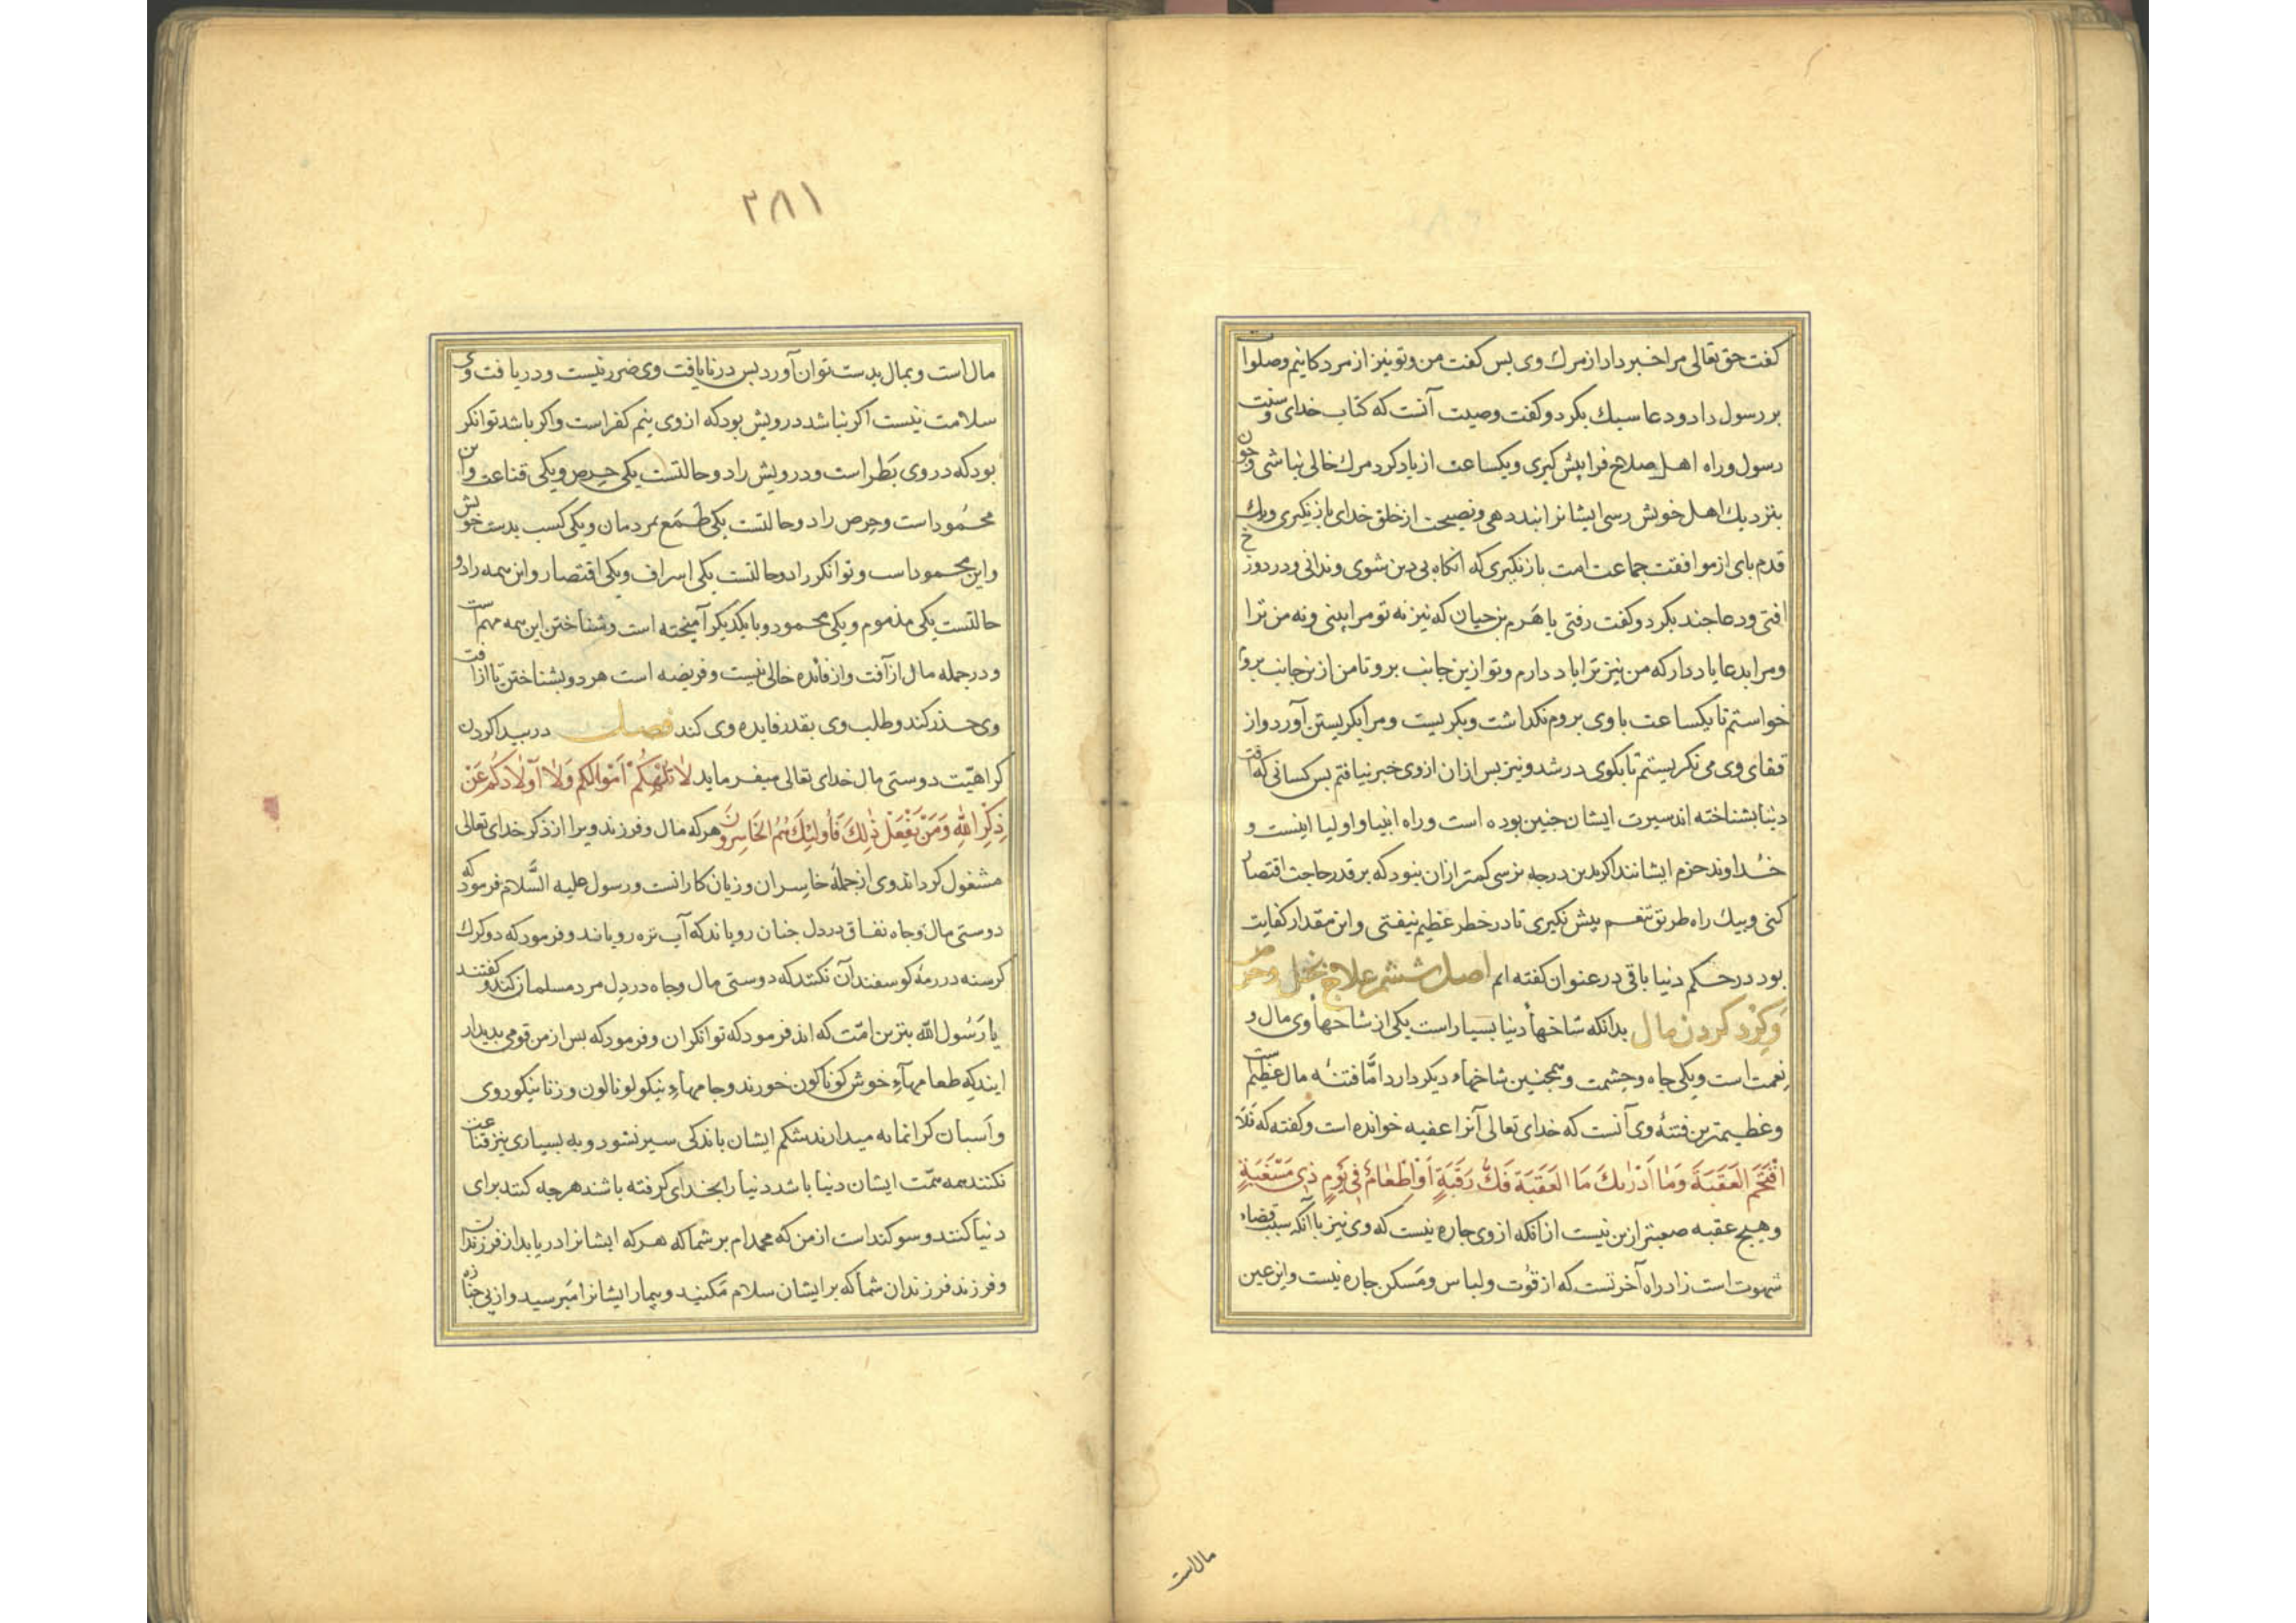 كفت حق تعالی مرا خبر داد از مرك وی بس كفت من و تو نیز از مردكانیم و صلوات
بر رسول داد و دعا سبك بكرد و كفت وصیت آنست كه كتاب خدای و سنت
رسول و راه اهل صلاح فرا پیش كیری و یكساعت از یاد كرد مرك خالی نباشی و چون
بنزدیك اهل خویش رسی ایشانرا پند دهی و نصیحت از خلق خدای باز نكیری و یك
قدم بای از موافقت جماعت امت باز نكیری كه آنكاه بی دین شوی و ندانی و در دوزخ
افتی و دعا چند بكرد و كفت رفتی یا هَرم بن حیان كه نیز نه تو مرا بینی و نه من ترا
و مرا بدعا یاد دار كه من نیز ترا یاد دارم و تو ازین جانب برو تا من ازین جانب بروم
خواستم تا یكساعت با وی بروم نكذاشت و بكریست و مرا بكریستن آورد و از
قفای وی می نكریستم تا بكوی در شد و نیز بس ازان از وی خبر نیافتم بس كسانی كه آفت
دنیا بشناخته اند سیرت ایشان چنین بوده است و راه انبیا و اولیا اینست و
خُداوند حزم ایشانند اكر بدین درجه نرسی كمتر ازان نبود كه بر قدر حاجت اقتصار
كنی و بیك راه طریق تنعم پیش نكیری تا در خطر عظیم نیفتی و این مقدار كفایت
بود در حكم دنیا باقی در عنوان كفته ایم اصل ششم علاج بخل و حرص
وَ كِرْد كردن مال بدانكه شاخهاء دنیا بسیار است یكی از شاخهاء وی مال و
نِعمت است و یكی جاه و حشمت و همچنین شاخهاء دیكر دارد امَّا فتنهٔ مال عظیم است
و عظیمترین فتنهٔ وی آنست كه خدای تعالی آنرا عقبه خوانده است و كفته كه فَلَا
اقْتَحَمَ الْعَقَبَةَ وَمَا اَدْرٰیكَ مَا الْعَقَبَة فَكُّ رَقَبَةٍ اَوْ اِطْعَامٌ فِي يَوْمٍ ذِي مَسْغَبَةٍ
و هیچ عقبه صعبتر ازین نیست از انكه از وی چاره نیست كه وی نیز با آنكه سبب قضاء
شهوت است زاد راه آخرتست كه از قُوت و لباس و مَسكن چاره نیست و این عین
مال است
۳۸۱
مال است و بمال بدست توان آورد بس در نایافت وی ضرر نیست و در یافت وی
سلامت نیست اكر نباشد درویش بود كه از وی بیم كفر است و اكر باشد توانكر
بود كه در وی بَطَر است و درویش را دو حالتست یكی حِرص و یكی قناعت و این
محمُود است و حِرص را دو حالتست یكی طَمَع بمردمان و یكی كسب بدست خویش
و این محمود است و توانكر را دو حالتست یكی اسراف و یكی اقتصار و این همه را دو
حالتست یكی مذموم و یكی محمود و با یكدیكر آمیخته است و شناختن این همه مهم است
و در جمله مال از آفت و از فائده خالی نیست و فریضه است هر دو بشناختن تا از آفت
وی حذر كند و طلب وی بقدر فایده وی كند فصل در پیدا كردن
كراهیّت دوستی مال خدای تعالی میفرماید لَا تُلْهِكُمْ اَمْوَالُكُم وَلَا اَوْلَادُكُم عَنْ
ذِكْرِ اللهِ وَمَنْ يَفْعَلْ ذٰلِكَ فَاُولٰئِكَ هُمُ الْخَاسِرُونَ هر كه مال و فرزند ویرا از ذكر خدای تعالی
مشغول كرداند وی از جملهٔ خاسِران و زیان كارانست و رسول علیه السَّلام فرمود كه
دوستی مال و جاه نفاق در دل چنان رویاند كه آب تره رویاند و فرمود كه دو كرك
كرسنه در رمهٔ كوسفند آن نكنند كه دوستی مال و جاه در دل مرد مسلمان كند و كفتند
یا رَسُول الله بترین امّت كه اند فرمود كه توانكران و فرمود كه بس از من قومی بدیدار
آیند كه طعامهآءِ خوش كوناكون خورند و جامهاءِ نیكو لونا لون و زنا نیكو روی
و اَسبان كرانمایه میدارند شكم ایشان باندكی سیر نشود و به بسیاری نیز قناعت
نكنند همه همّت ایشان دنیا باشد دنیا را بخدای كرفته باشند هر چه كنند برای
دنیا كنند و سوكند است از من كه محمدام بر شما كه هر كه ایشانرا دریابد از فرزندان
و فرزند فرزندان شما كه بر ایشان سلام مَكنید و بیمار ایشانرا مَپرسید و از پی جنازه